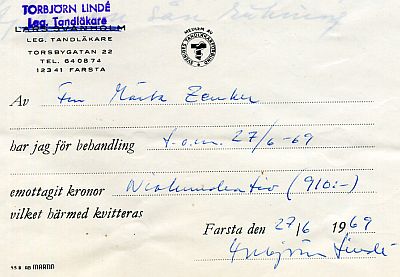 TORBJÖRN LINDÉ
Leg. Tandläkare
LARS SVANHOLM
LEG. TANDLÄKARE
TORSBYGATAN 22
TEL. 640874
12341 FARSTA
MEDLEM AV
SVERIGES TANDLÄKARFÖRBUND
Av Fru Märta Zenker
har jag för behandling t.o.m. 27/6-69
emottagit kronor Niohundratio (910:-)
vilket härmed kvitteras
Farsta den 27/6 1969
Torbjörn Lindé